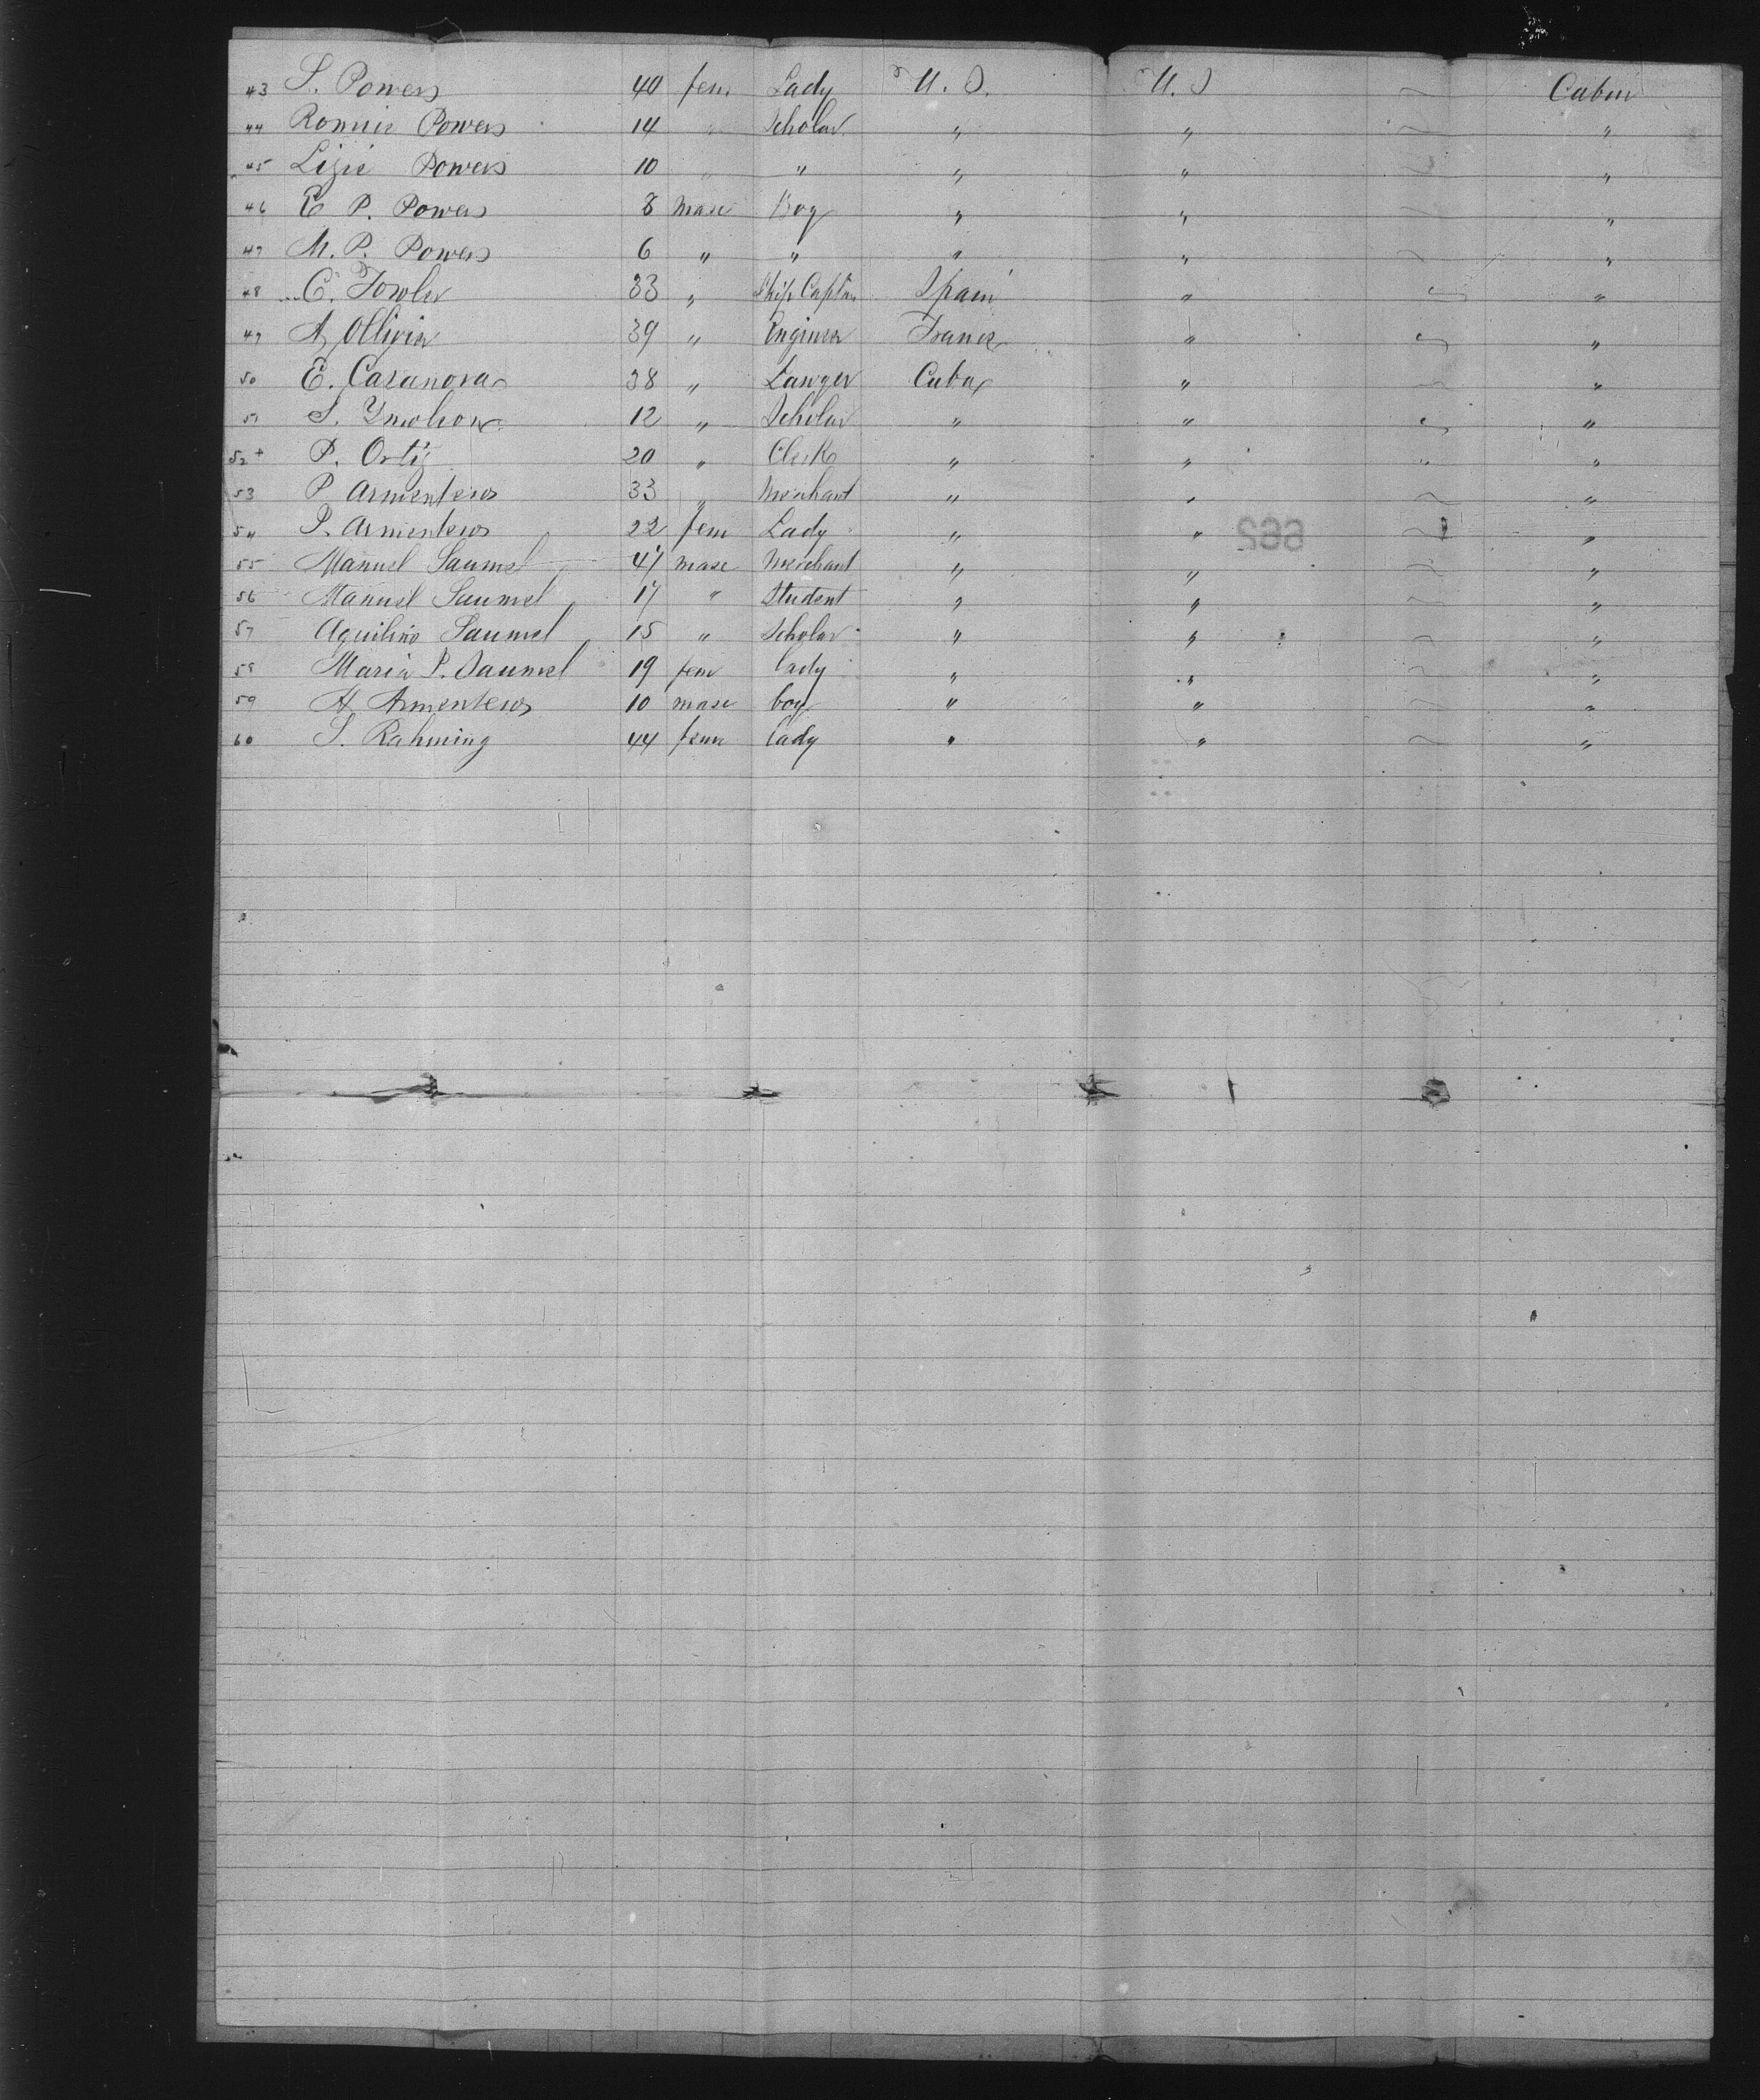 43 S. Powers 40 fem Lady U. S. U. S ~ Cabin
44 Rommie Powers 14 " Scholar " " ~ "
45 Lizie Powers 10 " " " " ~ "
46 E P. Powers 8 masc Boy " " ~ "
47 M. P. Powers 6 " " " " ~ "
48 C. Fowler 33 " Ship Captn Spain " ~ "
49 A, Ollivier 39 " Engineer France " ~ "
50 E. Casanova 38 " Lawyer Cuba " ~ "
51 S. 12 " Scholar " " ~ "
52 + P. Ortiz 20 " Clerk " " " "
53 P Armenteros 33 " Merchant " " ~ "
54 P. Armenteros 22 fem Lady " " ~ "
55 Manuel Saumel 47 masc Merchant " " ~ "
56 Manuel Saumel 17 " Student " " ~ "
57 Aquilino Saumel 15 " Scholar " " ~ "
58 Maria P. Saumel 19 fem lady " " ~ "
59 A Armenteros 10 masc boy " " ~ "
60 S. Rahming 44 fem lady " " ~ "